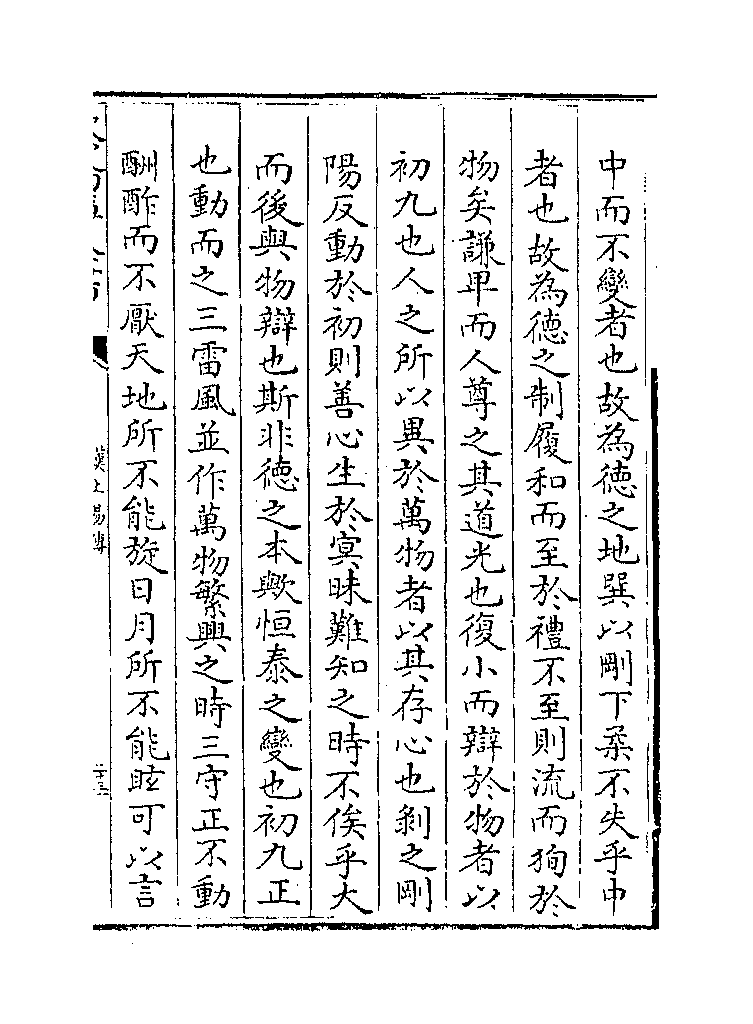 中而不變者也故為德之地巽以剛下柔不失乎中
者也故為德之制履和而至於禮不至則流而狥於
物矣謙卑而人尊之其道光也復小而辯於物者以
初九也人之所以異於萬物者以其存心也剝之剛
陽反動於初則善心生於冥昧難知之時不俟乎大
而後與物辯也斯非德之本歟恒泰之變也初九正
也動而之三雷風並作萬物繁興之時三守正不動
酬酢而不厭天地所不能旋日月所不能眩可以言
漢上易傳